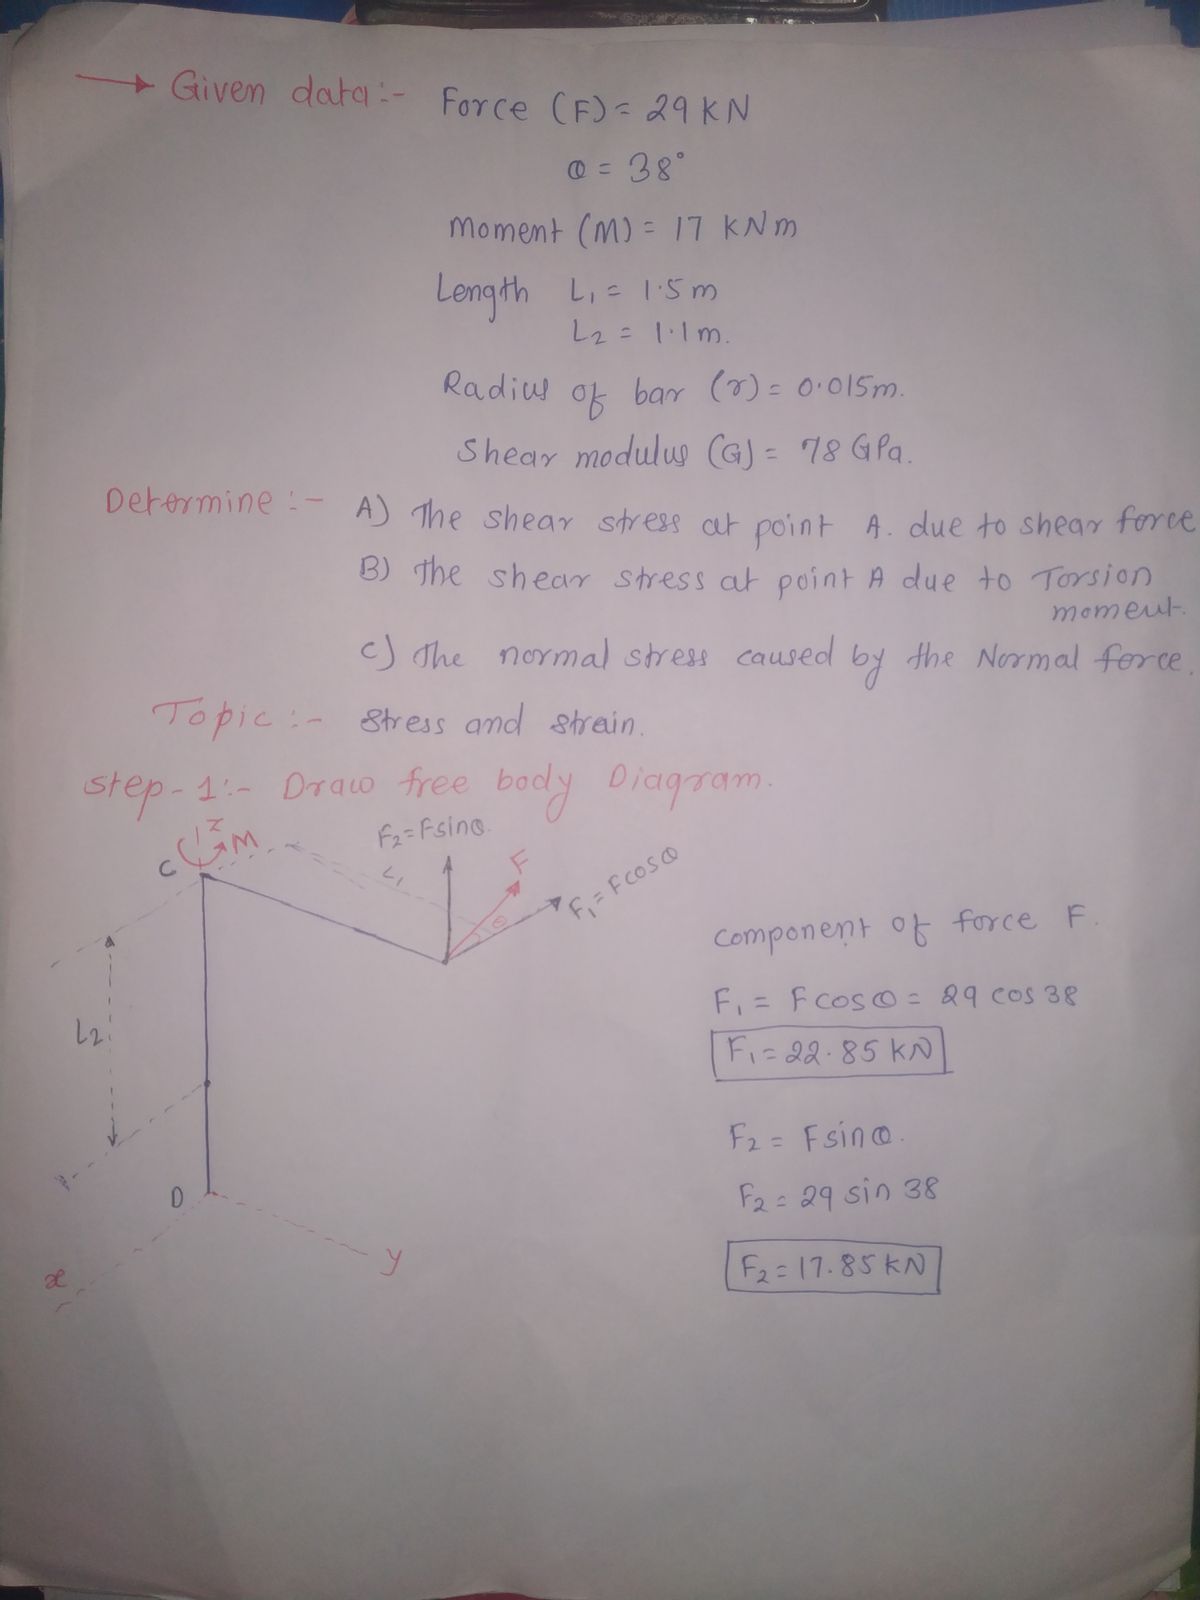 → Given data:- Force (F) = 29 KN
θ = 38°
Moment (M) = 17 KNm
Length L₁ = 1.5m
L₂ = 1.1m.
Radius of bar (r) = 0.015m.
Shear modulus (G) = 78 GPa.
Determine:- A) The shear stress at point A. due to shear force
B) The shear stress at point A due to Torsion
moment.
C) The normal stress caused by the Normal force.
Topic:- Stress and strain.
Step-1:- Draw free body Diagram.
z
M
C
F₂=Fsinθ.
L₁
F
θ
F₁=Fcosθ
L₂
D
x
y
component of force F.
F₁ = Fcosθ = 29 cos 38
F₁ = 22.85 KN
F₂ = Fsinθ.
F₂ = 29 sin 38
F₂ = 17.85 KN